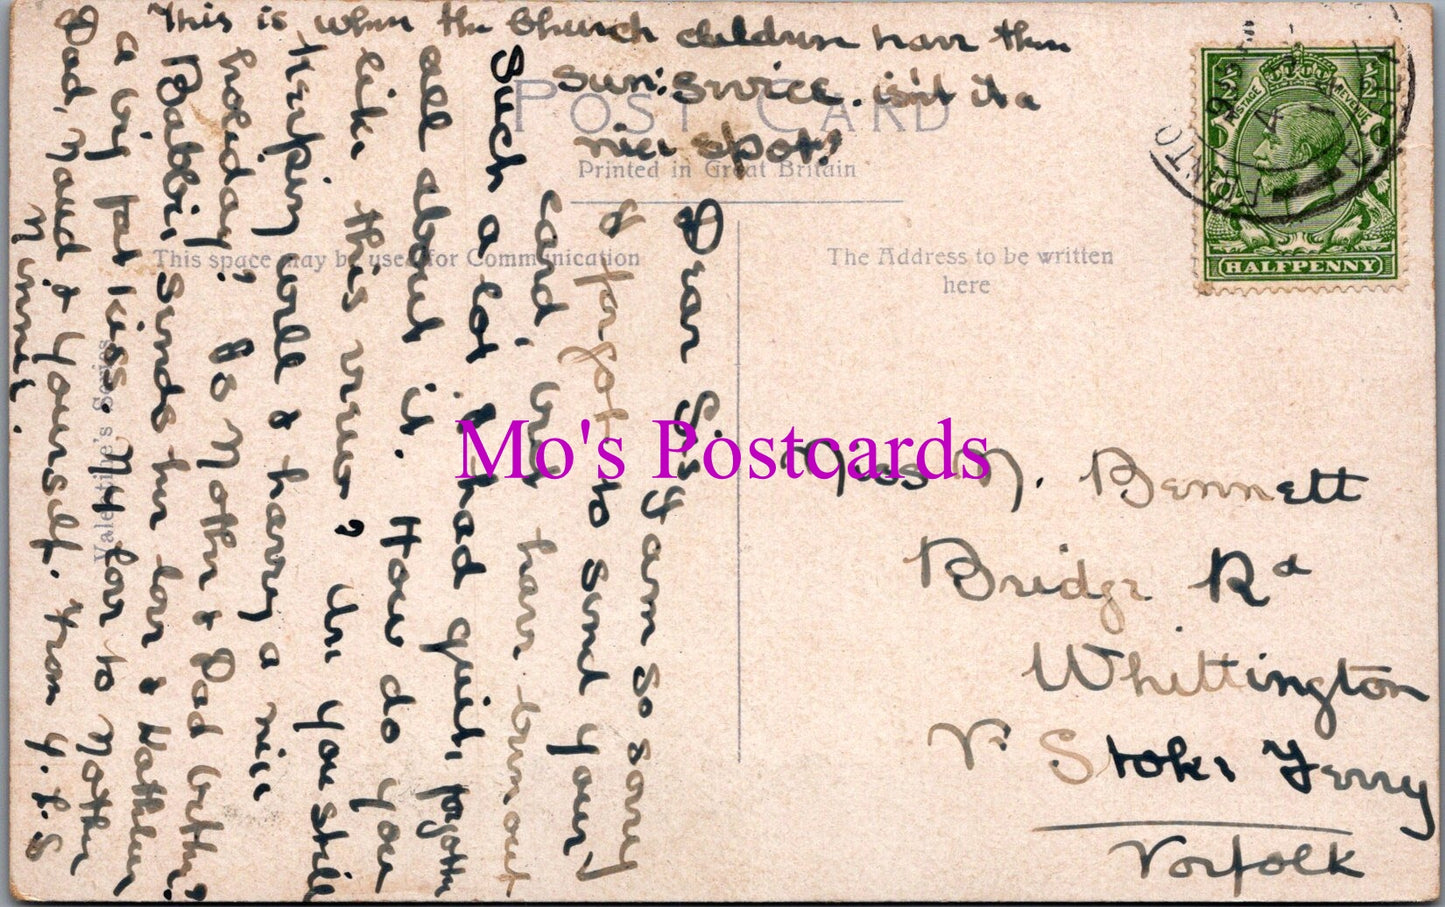 This is when the Church children have their
Sun: Service. isn't it a
nice spot!
POST CARD
Printed in Great Britain
This space may be used for Communication
The Address to be written
here
Valentine's Series
HALFPENNY
POSTAGE
REVENUE
½
½
Dear Sis, I am so sorry
I forgot to send your
card, but have been out
such a lot I had quite forgotten
all about it. How do you
like this view? Are you still
keeping well & having a nice
holiday? So Mother & Dad
Babbie sends her love & Kathleen
a big fat kiss. My love to Mother
Dad, Maud & yourself. From
Mo's Postcards
Miss M. Bennett
Bridge Rd
Whittington
Nr Stoke Ferry
Norfolk